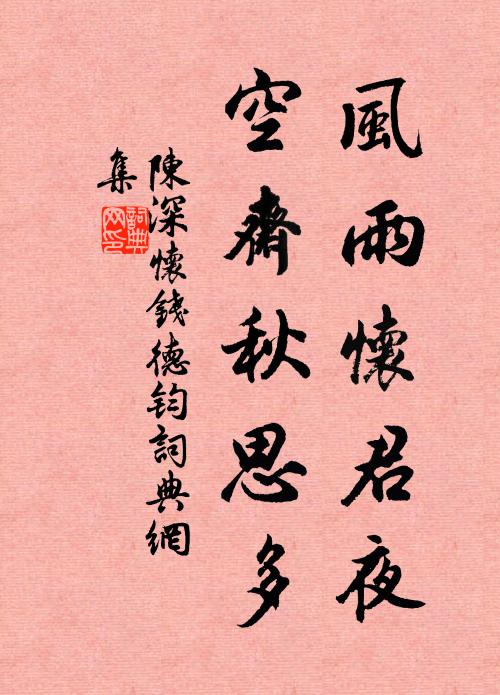 風雨懷君夜
空齋秋思多
陳深懷錢德鈞詞典網
集
詞典
网印